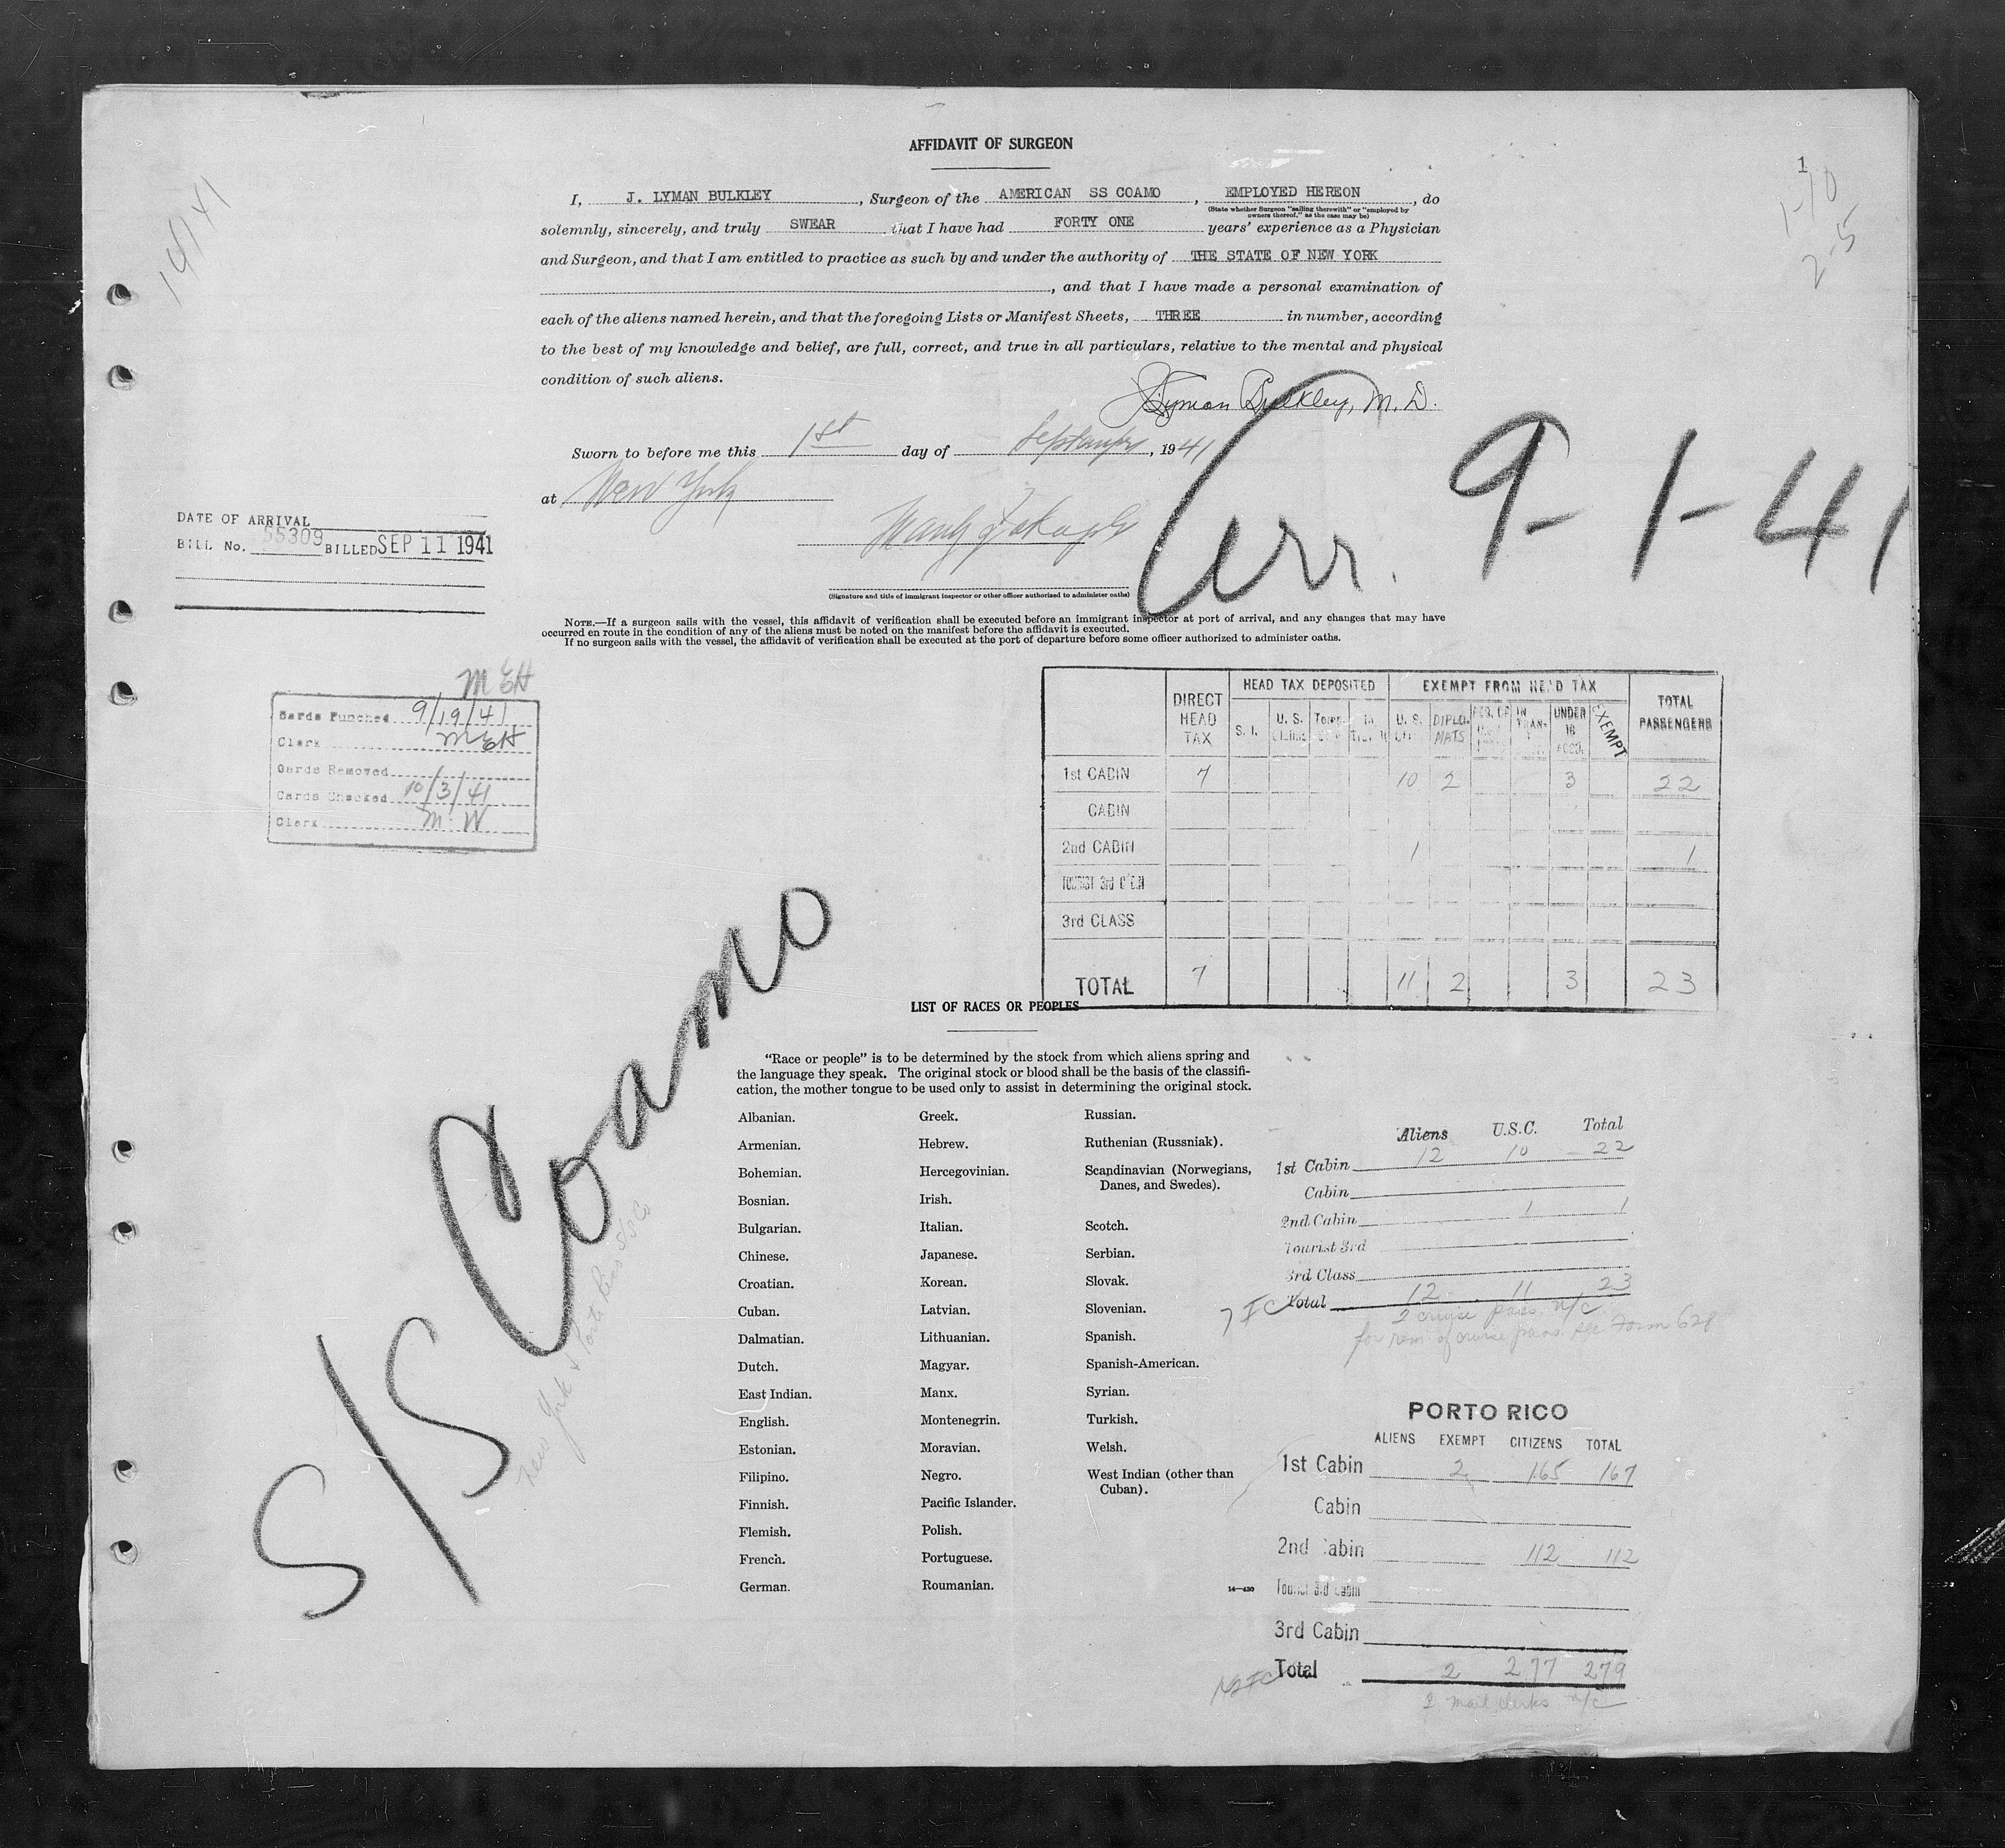 AFFIDAVIT OF SURGEON
1
1-10
2-5
14/141
I, J. LYMAN BULKLEY, Surgeon of the AMERICAN SS COAMO, EMPLOYED HEREON, do
(State whether Surgeon "sailing therewith" or "employed by
owners thereof," as the case may be)
solemnly, sincerely, and truly SWEAR that I have had FORTY ONE years' experience as a Physician
and Surgeon, and that I am entitled to practice as such by and under the authority of THE STATE OF NEW YORK
, and that I have made a personal examination of
each of the aliens named herein, and that the foregoing Lists or Manifest Sheets, THREE in number, according
to the best of my knowledge and belief, are full, correct, and true in all particulars, relative to the mental and physical
condition of such aliens.
J Lyman Bulkley, M.D.
Sworn to before me this 1st day of September, 1941
at New York
Arr. 9-1-41
DATE OF ARRIVAL
BILL No. 55309 BILLED SEP 11 1941
(Signature and title of immigrant inspector or other officer authorized to administer oaths)
NOTE.—If a surgeon sails with the vessel, this affidavit of verification shall be executed before an immigrant inspector at port of arrival, and any changes that may have
occurred en route in the condition of any of the aliens must be noted on the manifest before the affidavit is executed.
If no surgeon sails with the vessel, the affidavit of verification shall be executed at the port of departure before some officer authorized to administer oaths.
MEH
Cards Punched 9/19/41
Clerk MEH
Cards Removed
Cards Checked 10/3/41
Clerk M W
DIRECT HEAD TAX HEAD TAX DEPOSITED EXEMPT FROM HEAD TAX TOTAL PASSENGERS
S. I. U. S. IN U. S. DIPLO. MATS IN TRAN- UNDER 16 ACCO. EXEMPT
1st CABIN 7 10 2 3 22
CABIN
2nd CABIN 1 1
TOURIST 3rd
3rd CLASS
TOTAL 7 11 2 3 23
S/S Coamo
New York & Porto Rico SS Co
LIST OF RACES OR PEOPLES
"Race or people" is to be determined by the stock from which aliens spring and
the language they speak. The original stock or blood shall be the basis of the classifi-
cation, the mother tongue to be used only to assist in determining the original stock.
Albanian.
Armenian.
Bohemian.
Bosnian.
Bulgarian.
Chinese.
Croatian.
Cuban.
Dalmatian.
Dutch.
East Indian.
English.
Estonian.
Filipino.
Finnish.
Flemish.
French.
German.
Greek.
Hebrew.
Hercegovinian.
Irish.
Italian.
Japanese.
Korean.
Latvian.
Lithuanian.
Magyar.
Manx.
Montenegrin.
Moravian.
Negro.
Pacific Islander.
Polish.
Portuguese.
Roumanian.
Russian.
Ruthenian (Russniak).
Scandinavian (Norwegians,
Danes, and Swedes).
Scotch.
Serbian.
Slovak.
Slovenian.
Spanish.
Spanish-American.
Syrian.
Turkish.
Welsh.
West Indian (other than
Cuban).
14—430
Aliens U.S.C. Total
1st Cabin 12 10 22
Cabin
2nd Cabin 1 1
Tourist 3rd
3rd Class
Total 12 11 23
2 cruise pass. n/c
for rem. of cruise pass. see Form 628
PORTO RICO
ALIENS EXEMPT CITIZENS TOTAL
1st Cabin 2 165 167
Cabin
2nd Cabin 112 112
Tourist 3rd Cabin
3rd Cabin
Total 2 277 279
2 mail clerks n/c